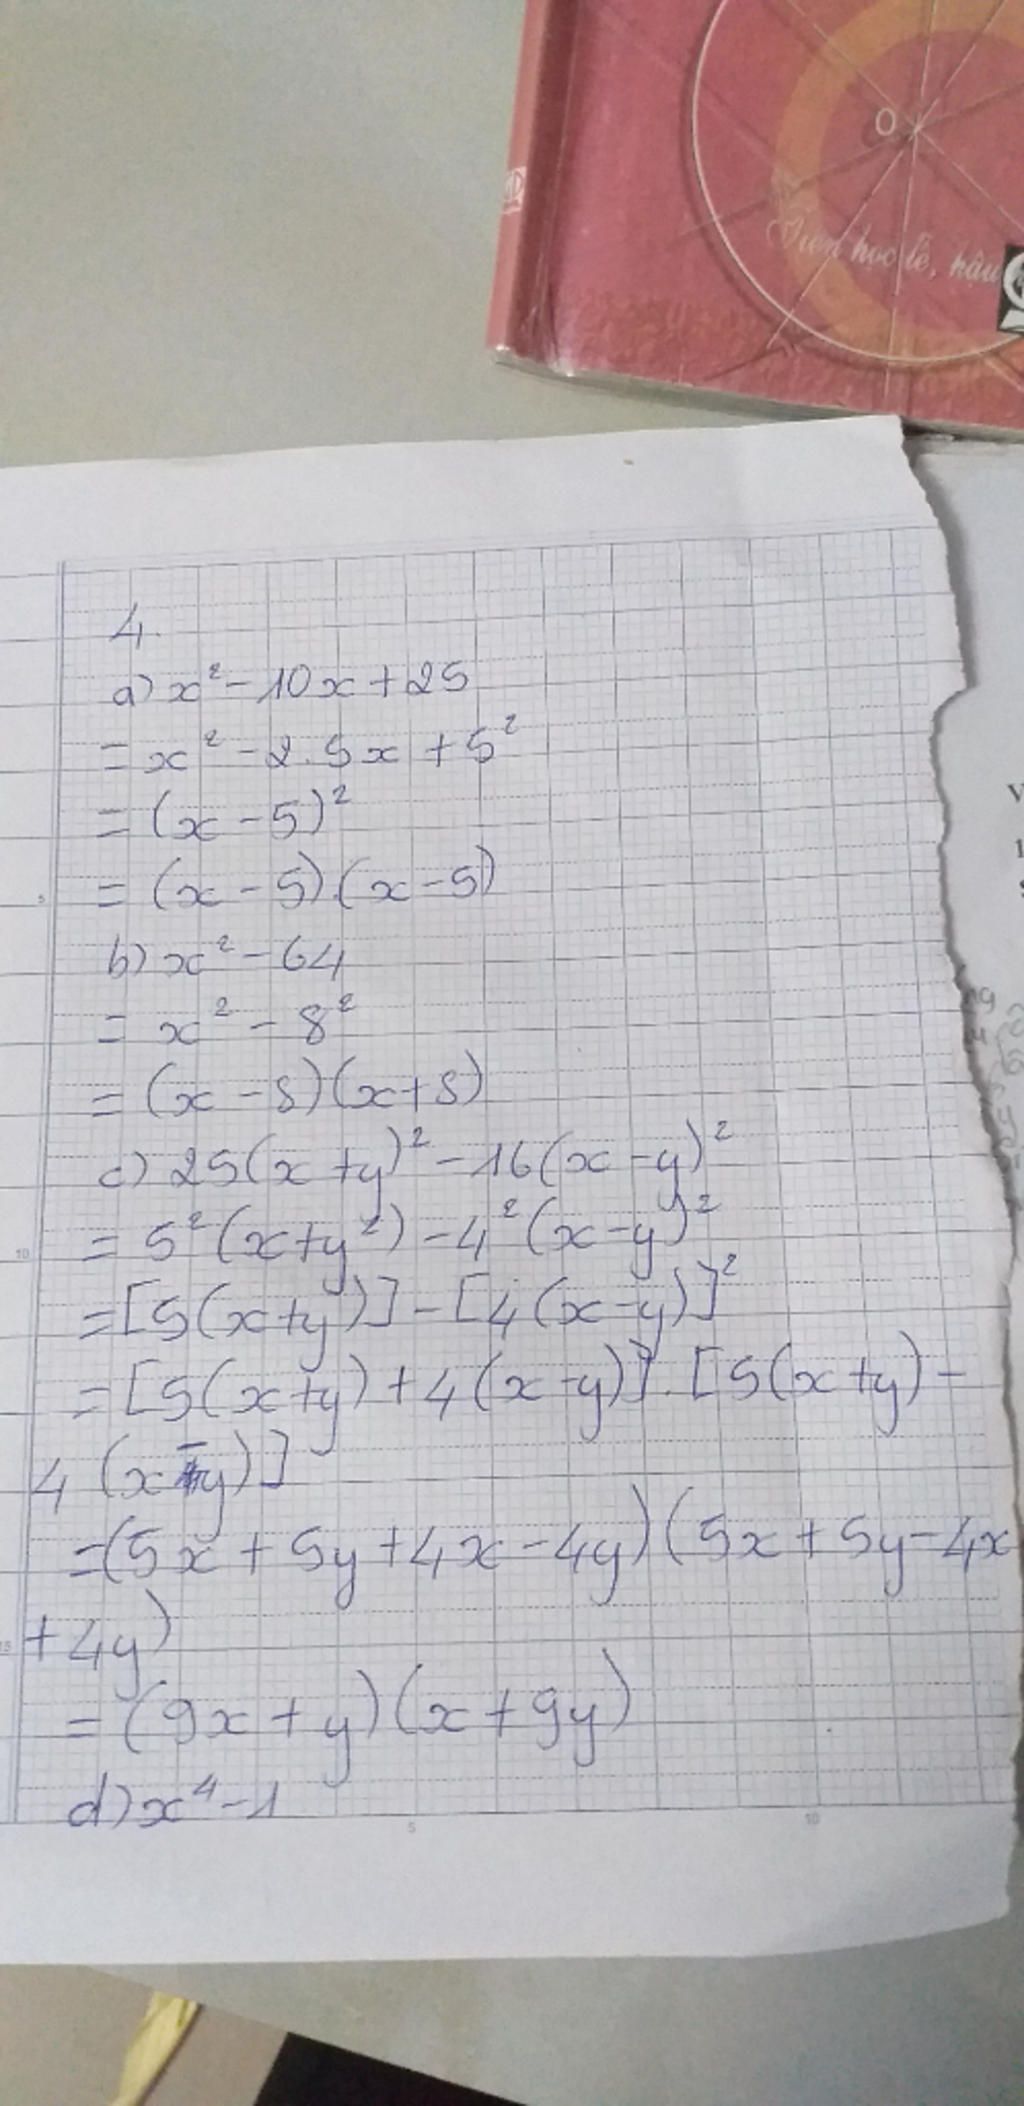 O
Tiên học lễ, hậu
4.
a) x² - 10x + 25
= x² - 2.5x + 5²
= (x - 5)²
= (x - 5).(x - 5)
b) x² - 64
= x² - 8²
= (x - 8)(x + 8)
c) 25(x + y)² - 16(x - y)²
= 5²(x + y²) - 4²(x - y)²
= [5(x + y)] - [4(x - y)]²
= [5(x + y) + 4(x - y)].[5(x + y) -
4(x - y)]
= (5x + 5y + 4x - 4y)(5x + 5y - 4x
+ 4y)
= (9x + y)(x + 9y)
d) x⁴ - 1
5
10
15
5
10